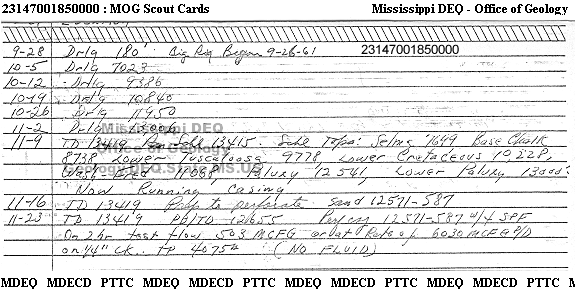 23147001850000 : MOG Scout Cards Mississippi DEQ - Office of Geology
9-28 Drlg 180' Big Rig Began 9-26-61 23147001850000
10-5 Drlg 7023
10-12 Drlg 9386
10-19 Drlg 10840
10-26 Drlg 11950
11-2 Drlg 13006
11-9 TD 13419 13415 Schl Tops: Selma 7649 Base Chalk
8738 Lower Tuscaloosa 9778, Lower Cretaceous 10228,
Wash-Fred 12068, Paluxy 12541, Lower Paluxy 13000
Now Running Casing
11-16 TD 13419 Prep to perforate sand 12571-587
11-23 TD 13419 PBTD 12655 Perfs 12571-587 w/4 SPF
On 2 hr test flow 503 MCFG or at Rate of 6030 MCFGP/D
on 1/4" CK. TP 4075# (NO FLUID)
Mississippi DEQ
Office of Geology
MDEQ MDECD PTTC MDEQ MDECD PTTC MDEQ MDECD PTTC MDEQ MDECD PTTC M